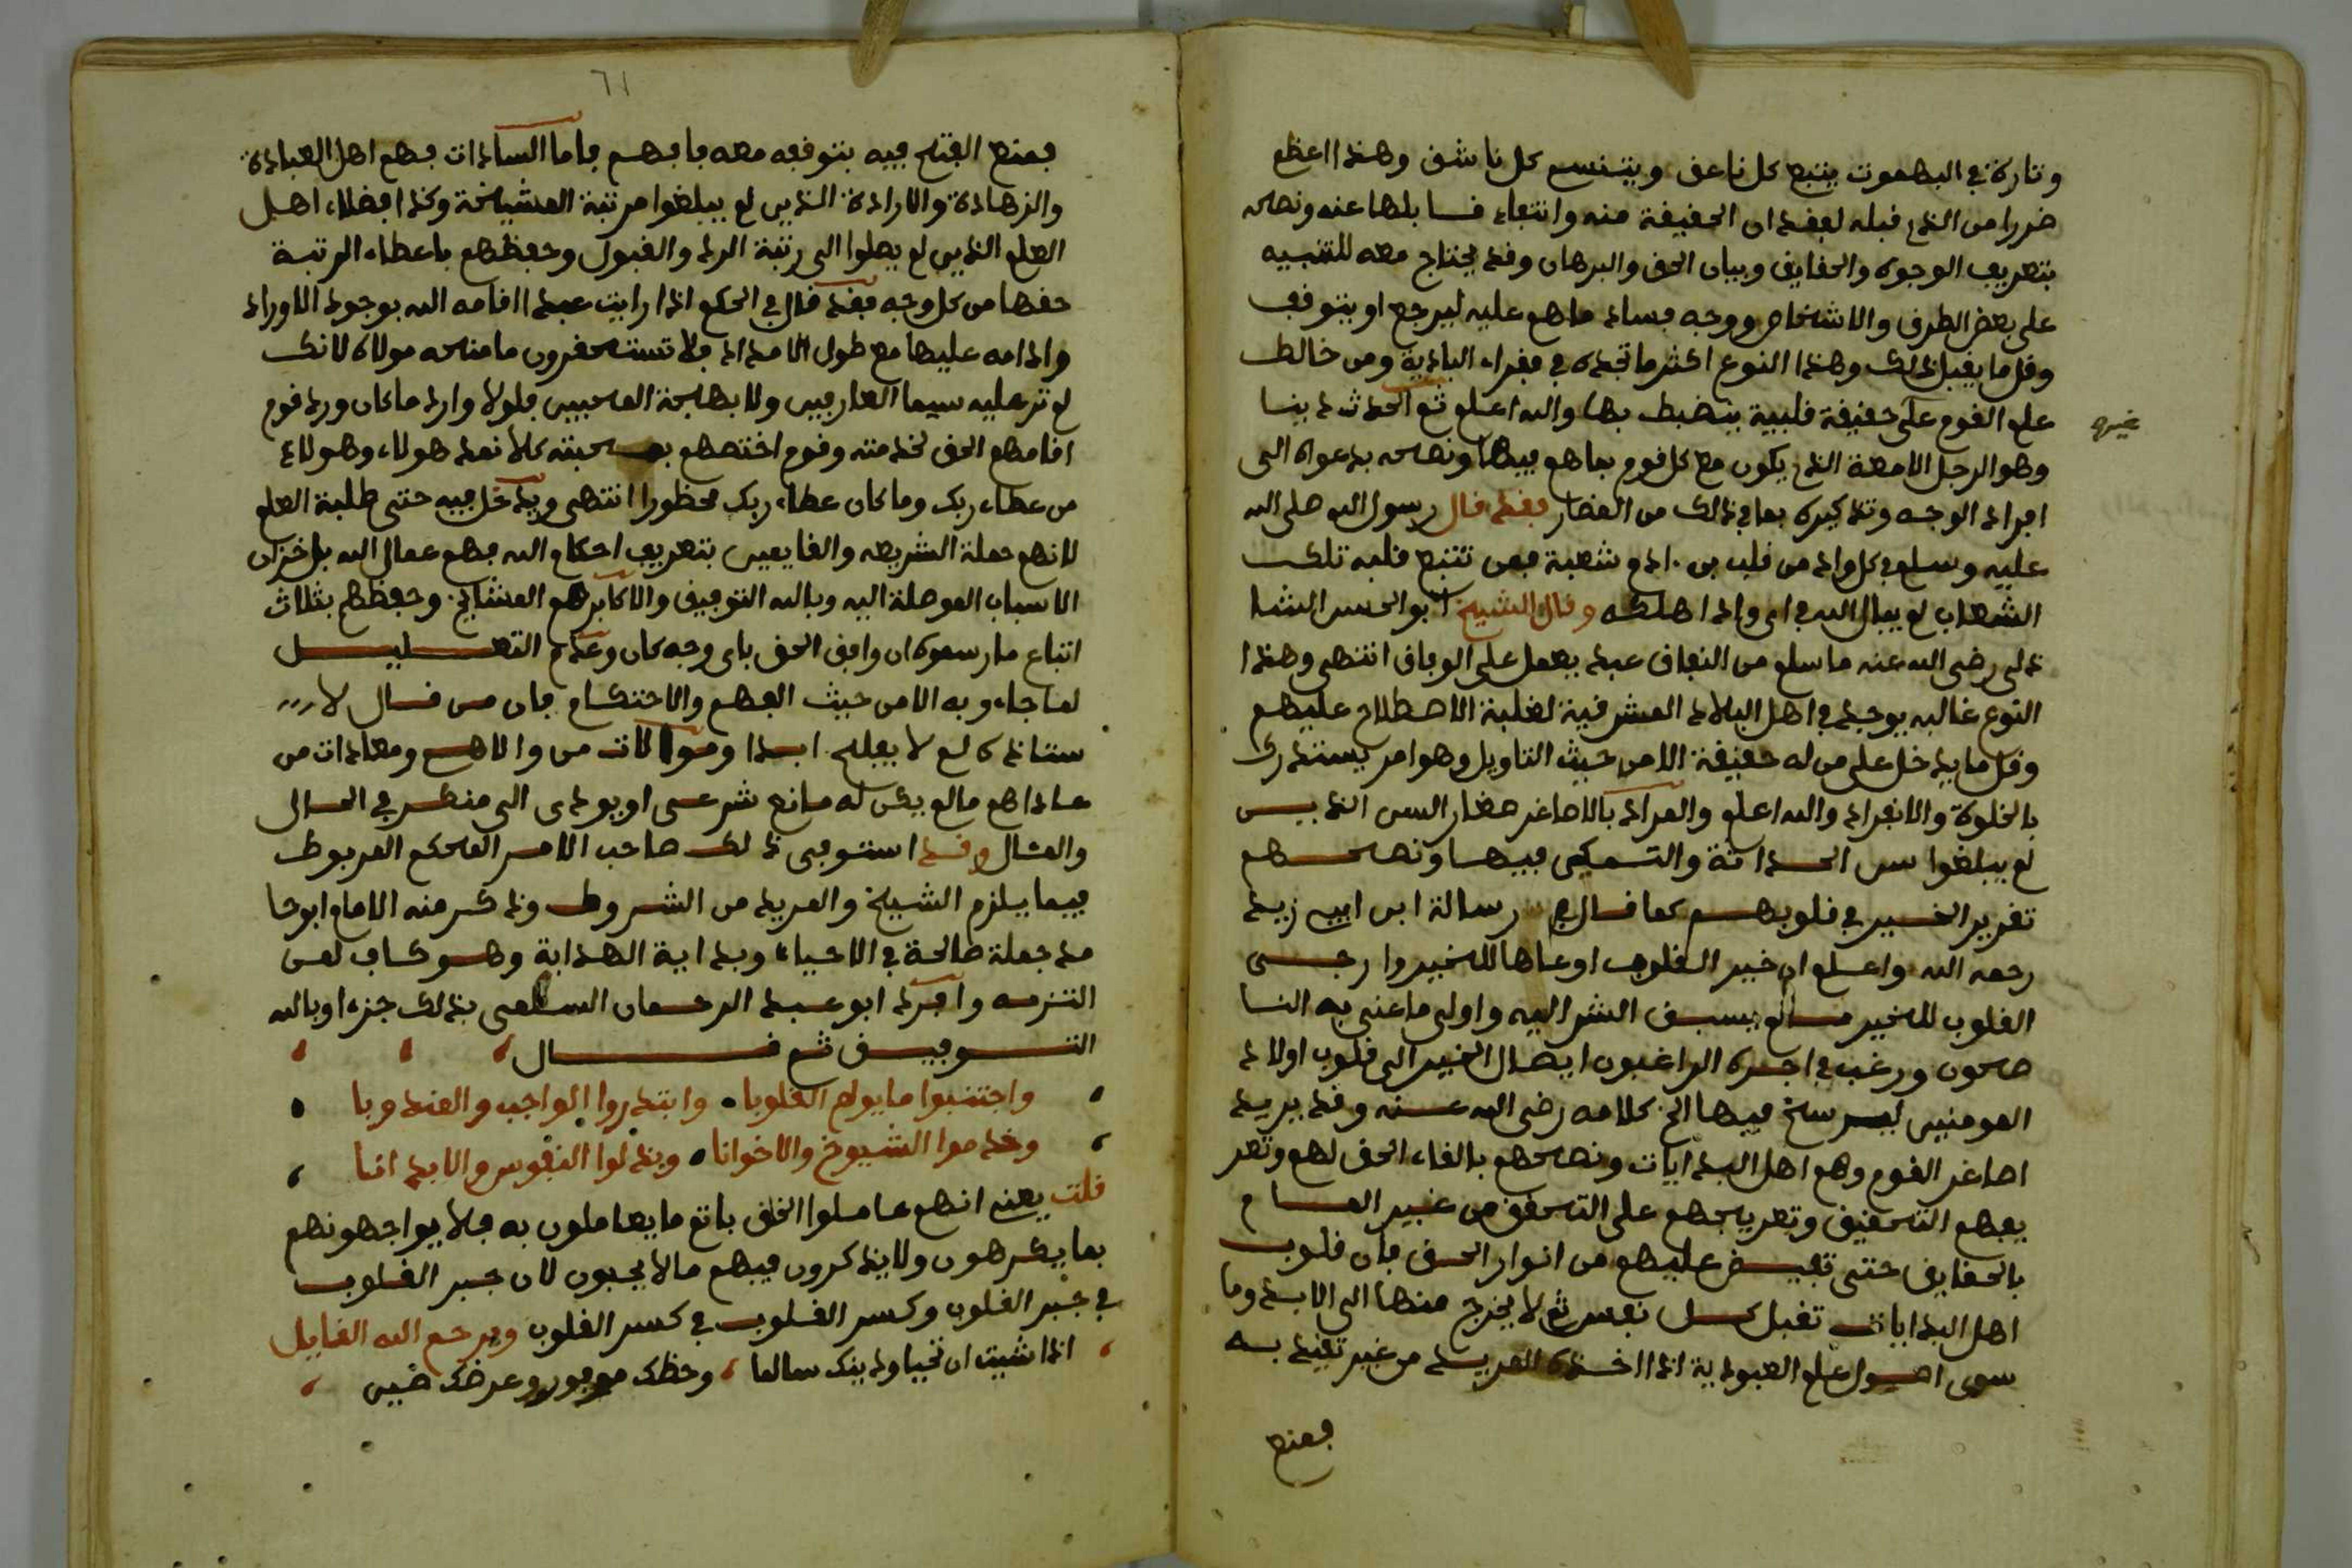 وتارة في البهموت يتبع كل ناعق ويتنسم كل ناشق وهذا اعظم
ضررا من الذي قبله لفقدان الحقيقة منه وانتفاء قابلها عنه ونصحه
بتعريف الوجوه والحقايق وبيان الحق والبرهان وقد يحتاج معه للتنبيه
على بعض الطرق والاشخاص ووجه فساد ما هم عليه ليرجع او يتوقف
وقل ما يقبل ذلك وهذا النوع اكثر ما تجده في فقراء البادية ومن خالط
علم القوم على حقيقة قلبية ينضبط بها والله اعلم ثم الحدث دينا
غيره
وهو الرجل الامعة الذي يكون مع كل قوم بما هو فيها ونصحه بدعواه الى
افراد الوجه وتذكيره بما في ذلك من المضار فقد قال رسول الله صلى الله
عليه وسلم في كل واد من قلب بن ادم شعبة فمن تتبع قلبه تلك
الشعاب لم يبال الله في اي واد اهلكه وقال الشيخ ابو الحسن الشا
ذلى رضي الله عنه ما سلم من النفاق عبد يعمل على الوفاق انتهى وهذا
النوع غالبه يوجد في اهل البلاد المشرقية لغلبة الاصطلاح عليهم
وقل ما يدخل على من له حقيقة الا من حيث التاويل وهو امر يستدرك
بالخلوة والانفراد والله اعلم والمراد بالاصاغر صغار السن الذيـــن
لم يبلغوا سن الحداثة والتمكن فيها ونصحـــهم
تقرير الخير في قلوبهم كما قال في رسالة ابن ابي زيد
رحمه الله واعلم ان خير القلوب اوعاها للخير وارجـــى
القلوب للخير ما لم يسبق الشر اليه واولى ما عنى به النا
صحون ورغب في اجره الراغبون ايصال الخير الى قلوب اولاد
المومنين ليرسخ فيها الخ كلامه رضي الله عنه وقد يريد
اصاغر القوم وهم اهل البدايات ونصحهم بالقاء الحق لهم وتعر
يفهم التحقيق وتعريجهم على التحقق من غير المـــام
بالحقايق حتى تفيض عليهم من انوار الحق فان قلوب
اهل البدايات تقبل كل نفس ثم لا يخرج منها الى الابد وما
سوى اصول علم العبودية اذا اخذه المريد من غير تقيد به
فمنع
٦١
فمنع الفتح فيه بتوقفه معه فافهم فاما السادات فهم اهل العبادة
والزهادة والارادة الذين لم يبلغوا مرتبة المشيخة وكذا فضلاء اهل
العلم الذين لم يصلوا الى رتبة الرد والقبول وحفظهم باعطاء الرتبة
حقها من كل وجه فقد قال في الحكم اذا رايت عبدا اقامه الله بوجود الاوراد
وادامه عليها مع طول الامداد فلا تستحقرون ما منحه مولاه لانك
لم تر عليه سيما العارفين ولا بهجة المحبين فلولا وارد ما كان ورد قوم
اقامهم الحق لخدمته وقوم اختصهم بمحبته كلا نمد هولاء وهولاء
من عطاء ربك وما كان عطاء ربك محظورا انتهى ويدخل فيه حتى طلبة العلم
لانهم حملة الشريعه والقايمين بتعريف احكام الله فهم عمال الله بل خزان
الاسباب الموصلة اليه وبالله التوفيق والاكابر هم المشايخ وحفظهم بثلاث
اتباع ما رسموه ان وافق الحق باي وجه كان وعدم التعـــليـــل
لما جاء وبه الا من حيث الفهم والاحتكام فان من قال لا
ستاذه لم لا يفلح ابدا وموالات من والاهم ومعادات من
عاداهم ما لم يكن له مانع شرعى او يودى الى منكر في الحال
والمثال وقد استوفى ذلك صاحب الامر المحكم المربوط
فيما يلزم الشيخ والمريد من الشروط وذكر منه الامام ابو حا
مد جملة صالحة في الاحياء وبداية الهداية وهو كاف لمن
التزمه وافرد ابو عبد الرحمان السلمى بذلك جزءا وبالله
التـــوفيـــق ثم قـــال
واجتنبوا ما يولم القلوبا وابتدروا الواجب والمندوبا
وخدموا الشيوخ والاخوانا وبذلوا النفوس والابدانا
قلت يعنى انهم عاملوا الخلق باتم ما يعاملون به فلا يواجهونهم
بما يكرهون ولا يذكرون فيهم ما لا يحبون لان جبر القلوب
في جبر القلوب وكسر القلوب في كسر القلوب ويرحم الله القايل
اذا شيت ان تحيا ودينك سالما وحظك موفور وعرضك صين